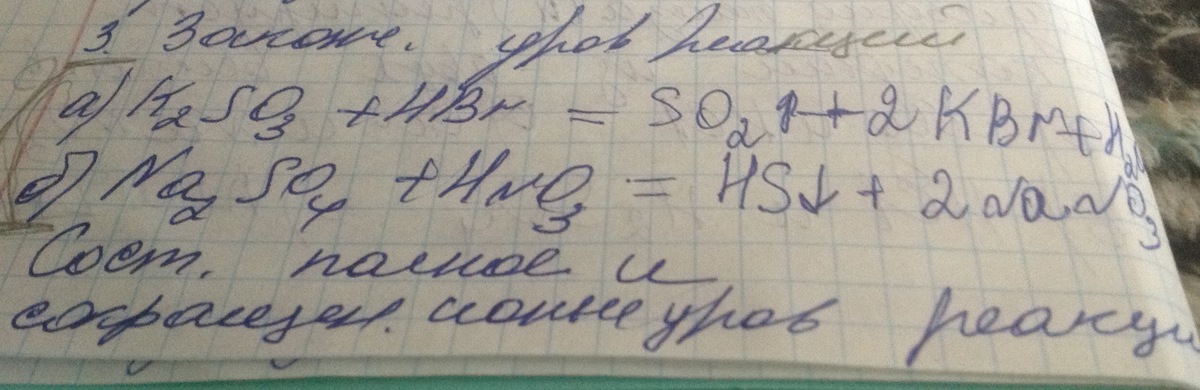 3. Законч. уров реакций
а) K₂SO₃ + HBr = SO₂↑ + 2KBr + H₂O
б) Na₂SO₄ + HNO₃ = HS↓ + 2NaNO₃
Сост. полное и
сокращен. ионные уров реакци